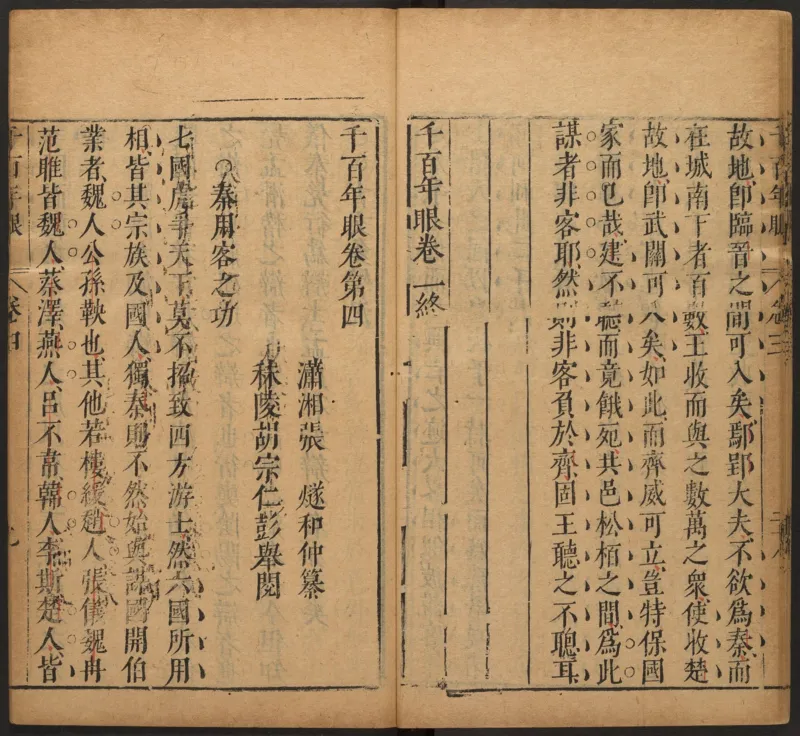 故地卽臨晉之間可入矣鄢郢大夫不欲爲秦而
在城南下者百數王收而與之數萬之衆使收楚
故地卽武關可入矣如此而齊威可立豈特保國
家而已哉建不聽而竟餓死其邑松栢之間爲此
謀者非客耶然則非客負於齊固王聽之不聰耳
千百年眼卷 終
千百年眼卷第四
瀟湘張 燧和仲纂
秣陵胡宗仁彭舉閱
秦用客之功
七國虎爭天下莫不招致四方游士然六國所用
相皆其宗族及國人獨秦則不然始與謀國開伯
業者魏人公孫鞅也其他若樓緩趙人張儀魏冉
范雎皆魏人蔡澤燕人呂不韋韓人李斯楚人皆
千百年眼 卷四